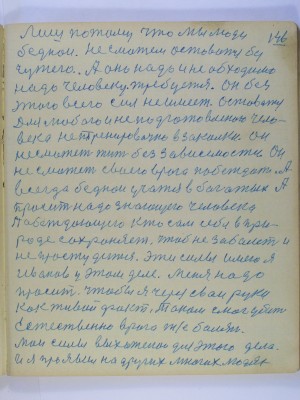 146
Пишу потому, что мы люди
бедной. не сможем остовать без
чужего. А оно надо и необходимо
надо человеку. требуется. Он без
этого всего сил не имеет. остоватся
Для любого и неподготовленого чело-
века нетренировочно в закалки. Он
не сможет жит без зависимости. Он
не сможет своего врага побеждать. А
всегда бедной учатся в богатых. А
просит надо знающего человека
Побеждающего кто сам себя в при-
роде сохроняет. чтоб не заболет и
не простудится. Эти силы имею я
Иванов у этом деле. Меня надо
просит. Чтобы я через свои руки
как живой факт. Таком смог убит
Естественно врага же болян.
Мои силы выхоженой для этого дела.
И я проявил на других многих людях